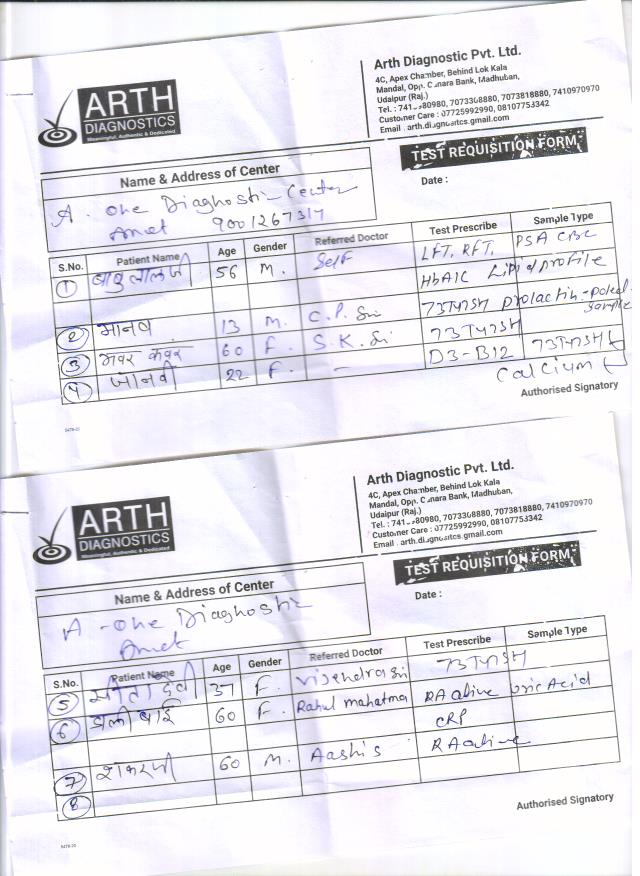 ARTH
DIAGNOSTICS
Meaningful, Authentic & Dedicated
Arth Diagnostic Pvt. Ltd.
4C, Apex Chamber, Behind Lok Kala
Mandal, Opp. Canara Bank, Madhuban,
Udaipur (Raj.)
Tel. : 980980, 7073308880, 7073818880, 7410970970
Customer Care : 07725992990, 08107753342
Email : arth.diagnostics.gmail.com
TEST REQUISITION FORM
Name & Address of Center
Date :
A. One Diagnostic Center
Amet 9001267317
S.No. Patient Name Age Gender Referred Doctor Test Prescribe Sample Type
1 बाबुलालजी 56 M. Self LFT, RFT, PSA CBC
HbA1C Lipid profile
T3T4TSH prolactin-
sample
2 मानव 13 M. C.P. Sir T3T4TSH
3 भवर कंवर 60 F. S.K. Sir D3-B12 T3T4TSH
4 जानवी 22 F. - Calcium
Authorised Signatory
5478-20
ARTH
DIAGNOSTICS
Meaningful, Authentic & Dedicated
Arth Diagnostic Pvt. Ltd.
4C, Apex Chamber, Behind Lok Kala
Mandal, Opp. Canara Bank, Madhuban,
Udaipur (Raj.)
Tel. : 980980, 7073308880, 7073818880, 7410970970
Customer Care : 07725992990, 08107753342
Email : arth.diagnostics.gmail.com
TEST REQUISITION FORM
Name & Address of Center
Date :
A-one Diagnostic
Amet
S.No. Patient Name Age Gender Referred Doctor Test Prescribe Sample Type
5 सीता देवी 37 F. Vijendra Sir T3T4TSH
6 डाली बाई 60 F. Rahul mahatma RA Uric Acid
CRP
7 60 M. Aashis RA
8
Authorised Signatory
5478-20